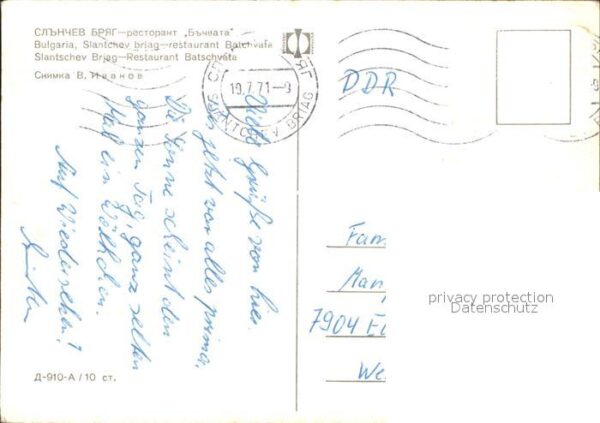 СЛЪНЧЕВ БРЯГ—ресторант „Бъчвата"
Bulgaria, Slantchev briag—restaurant Batchvata
Slantchev Briag—Restaurant Batschvata
Снимка В. Иванов
19.7.71-9
SLANTCHEV BRIAG
DDR
Grüße von hier.
jetzt von alles prima.
Die Sonne scheint den
ganzen Tag, ganz selten
Mal ein Wölkchen.
Auf Wiedersehen!
Fam
Man
7904 El
We
privacy protection
Datenschutz
Д-910-А / 10 ст.